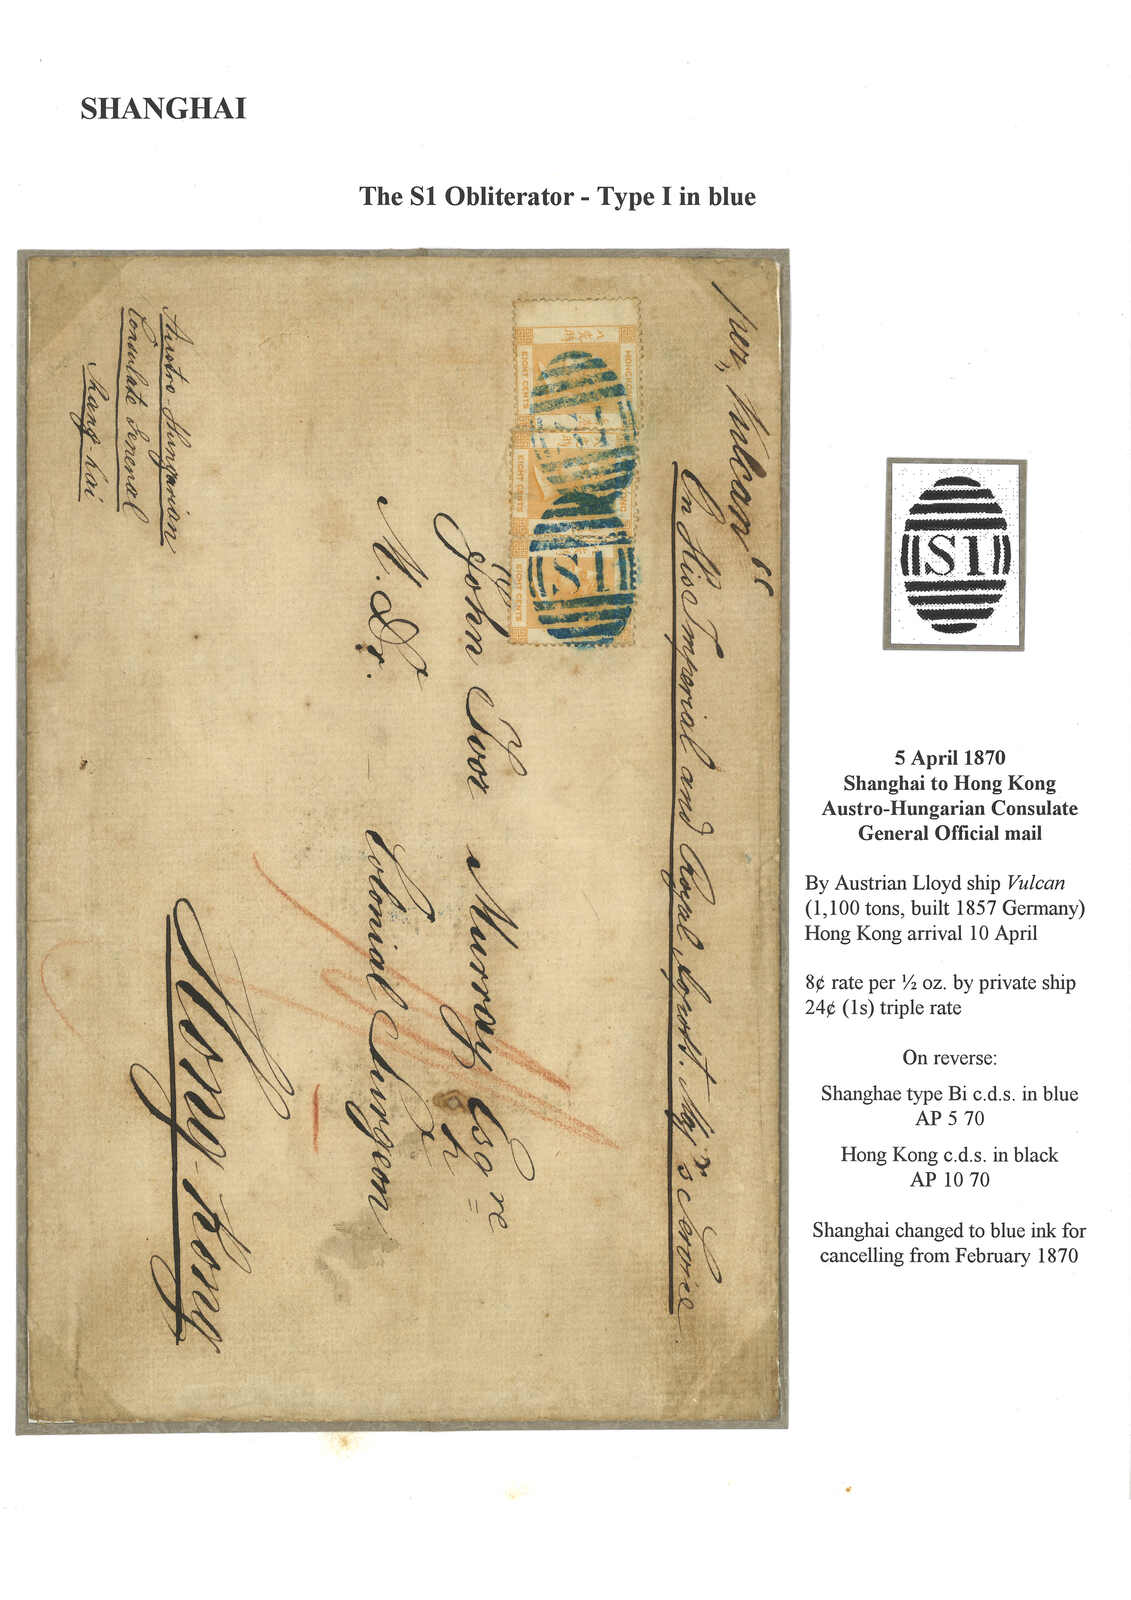 SHANGHAI
The S1 Obliterator - Type I in blue
per, Vulcan "
On His Imperial and Royal Apost. Maj'^s Service.
EIGHT CENTS
EIGHT CENTS
EIGHT CENTS
HONGKONG
S1
S1
To
John Ivor Murray Esq^re
M. Dr.
Colonial Surgeon
Hong-Kong
Austro-Hungarian
Consulate General
Shang-hai
S1
5 April 1870
Shanghai to Hong Kong
Austro-Hungarian Consulate
General Official mail
By Austrian Lloyd ship Vulcan
(1,100 tons, built 1857 Germany)
Hong Kong arrival 10 April
8¢ rate per ½ oz. by private ship
24¢ (1s) triple rate
On reverse:
Shanghae type Bi c.d.s. in blue
AP 5 70
Hong Kong c.d.s. in black
AP 10 70
Shanghai changed to blue ink for
cancelling from February 1870